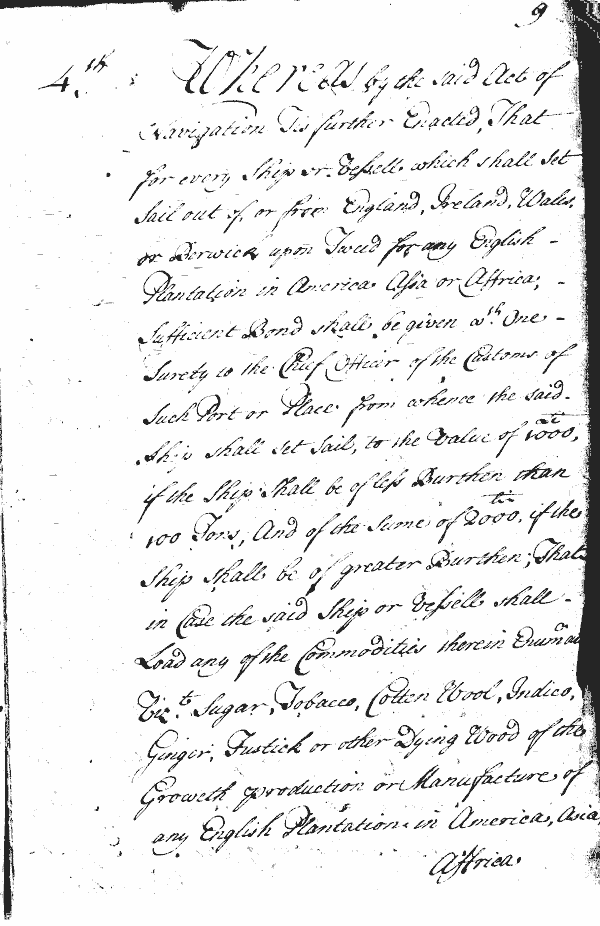 9
4.th Whereas by the said Act of
Navigation Tis further Enacted, That
for every Ship or Vessell which shall Set
Sail out of, or from England, Ireland, Wales,
or Berwick upon Tweed for any English -
Plantation in America Asia or Affrica; -
Sufficient Bond shall be given wth. One -
Surety to the Chief Officer of the Customs of
Such Port or Place from whence the said -
Ship shall set Sail, to the Value of 1000,
if the Ship shall be of less Burthen than
100 Tons, And of the Sume of 2000, if the
Ship shall be of greater Burthen; That
in Case the said Ship or Vessell shall -
Load any of the Commodities therein
Vizt. Sugar, Tobacco, Cotten Wool, Indico,
Ginger, Fustick or other Dying Wood of the
Groweth production or Manufacture of
any English Plantation in America, Asia,
Affrica